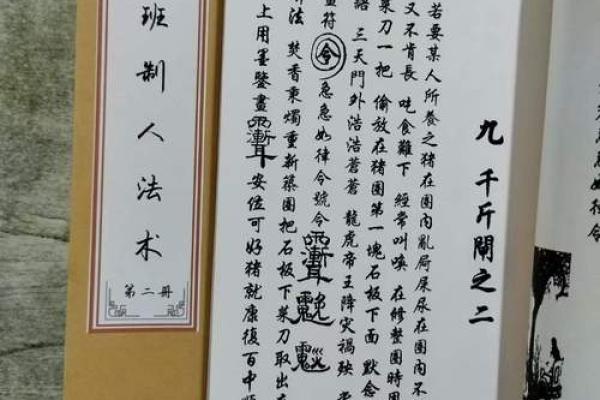 九千斤閘之二
若要某人所養之猪在圈內亂屙屎尿在圈內不
又不肯長 吃食難下 經常叫唤 在修整圈時用
菜刀一把 偷放在猪圈第一塊石板下面 默念
語 三天門外浩浩蒼蒼 龍虎帝王降灾禍殃
畫符 令 急急如律令號令
法 焚香秉燭重新築圈把石板下菜刀取出在
上用墨鑒畫 安位可好猪就康復百中
班制人法术
第二册